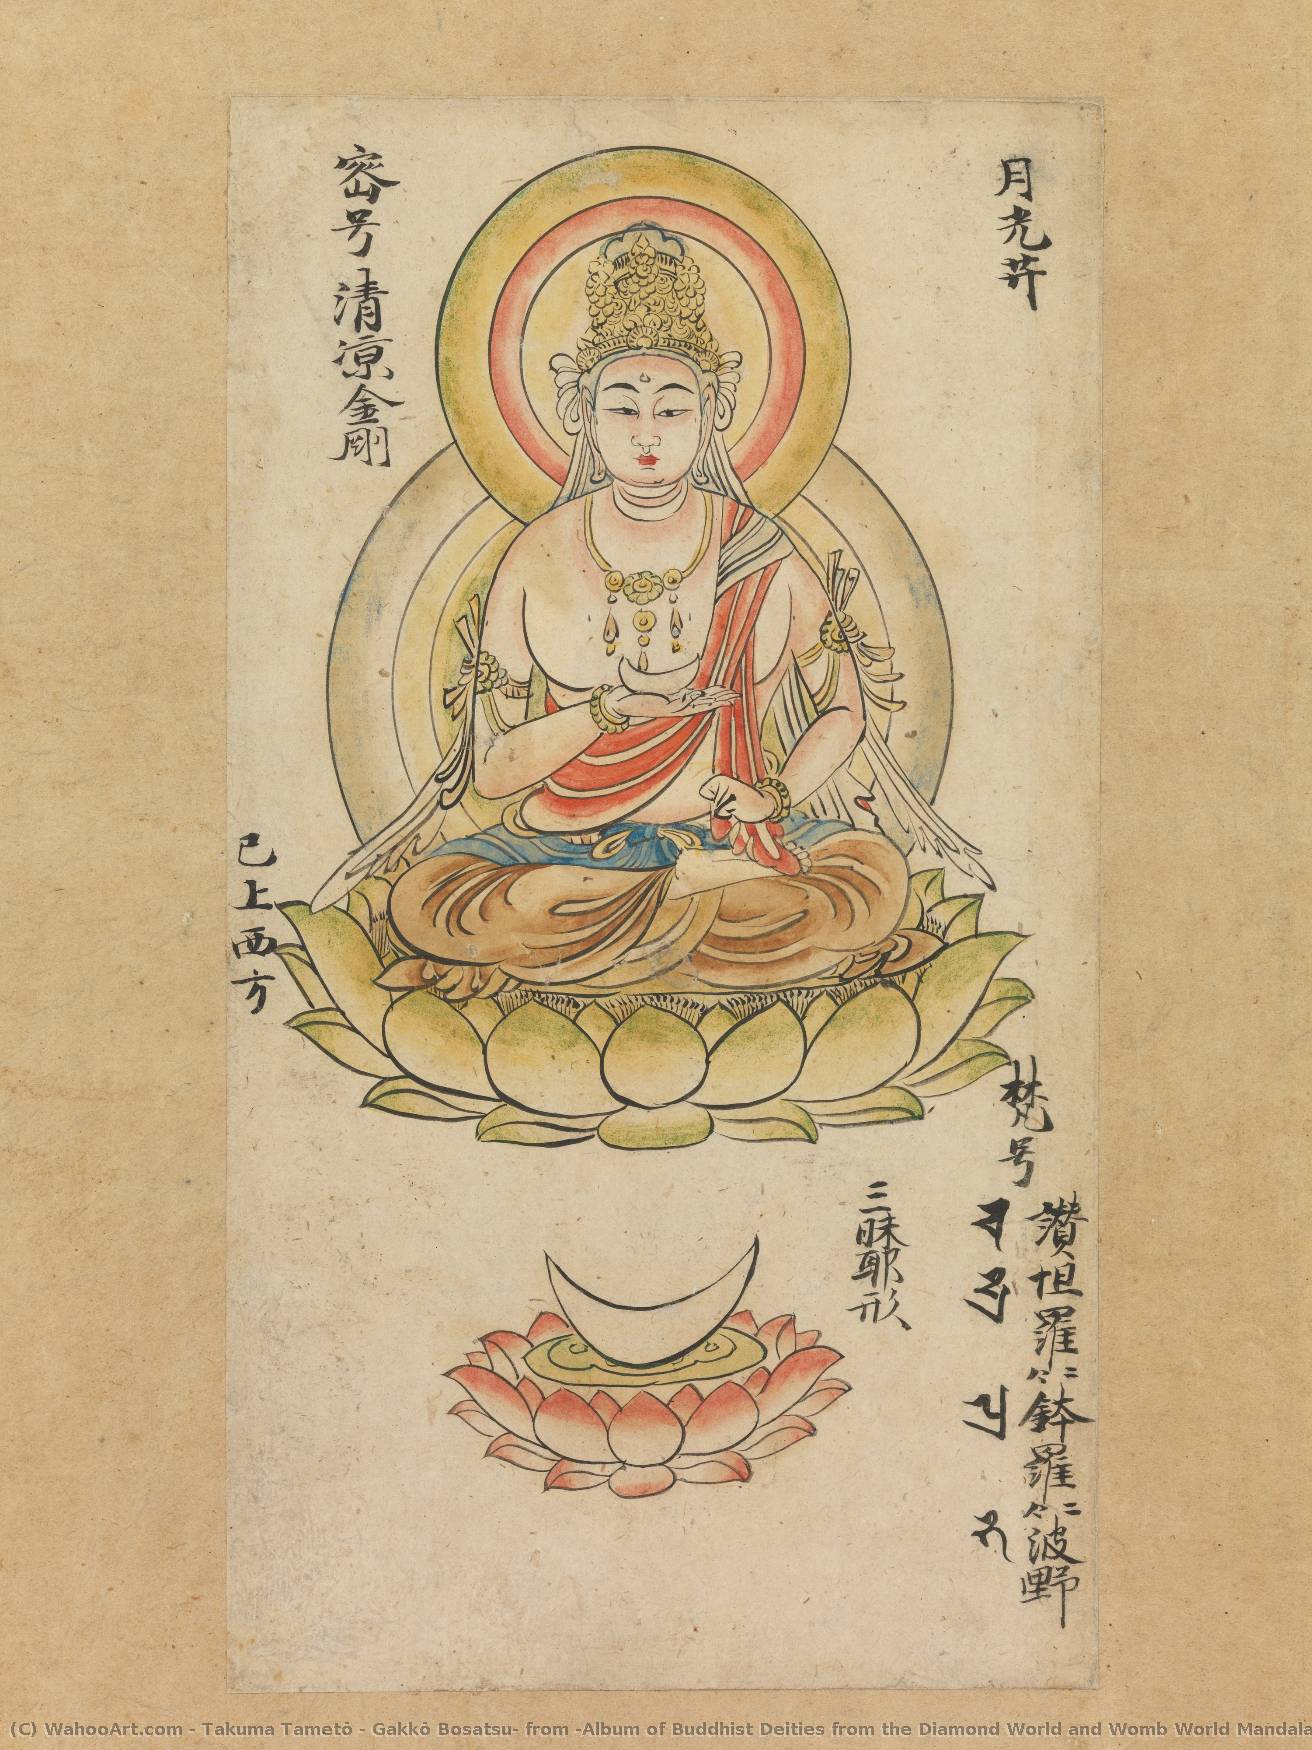 月光菩
梵号
讃怛羅二合鉢羅二合波野
三昧耶形
密号清凉金剛
已上西方
(C) WahooArt.com - Takuma Tametō - Gakkō Bosatsu- from -Album of Buddhist Deities from the Diamond World and Womb World Mandala